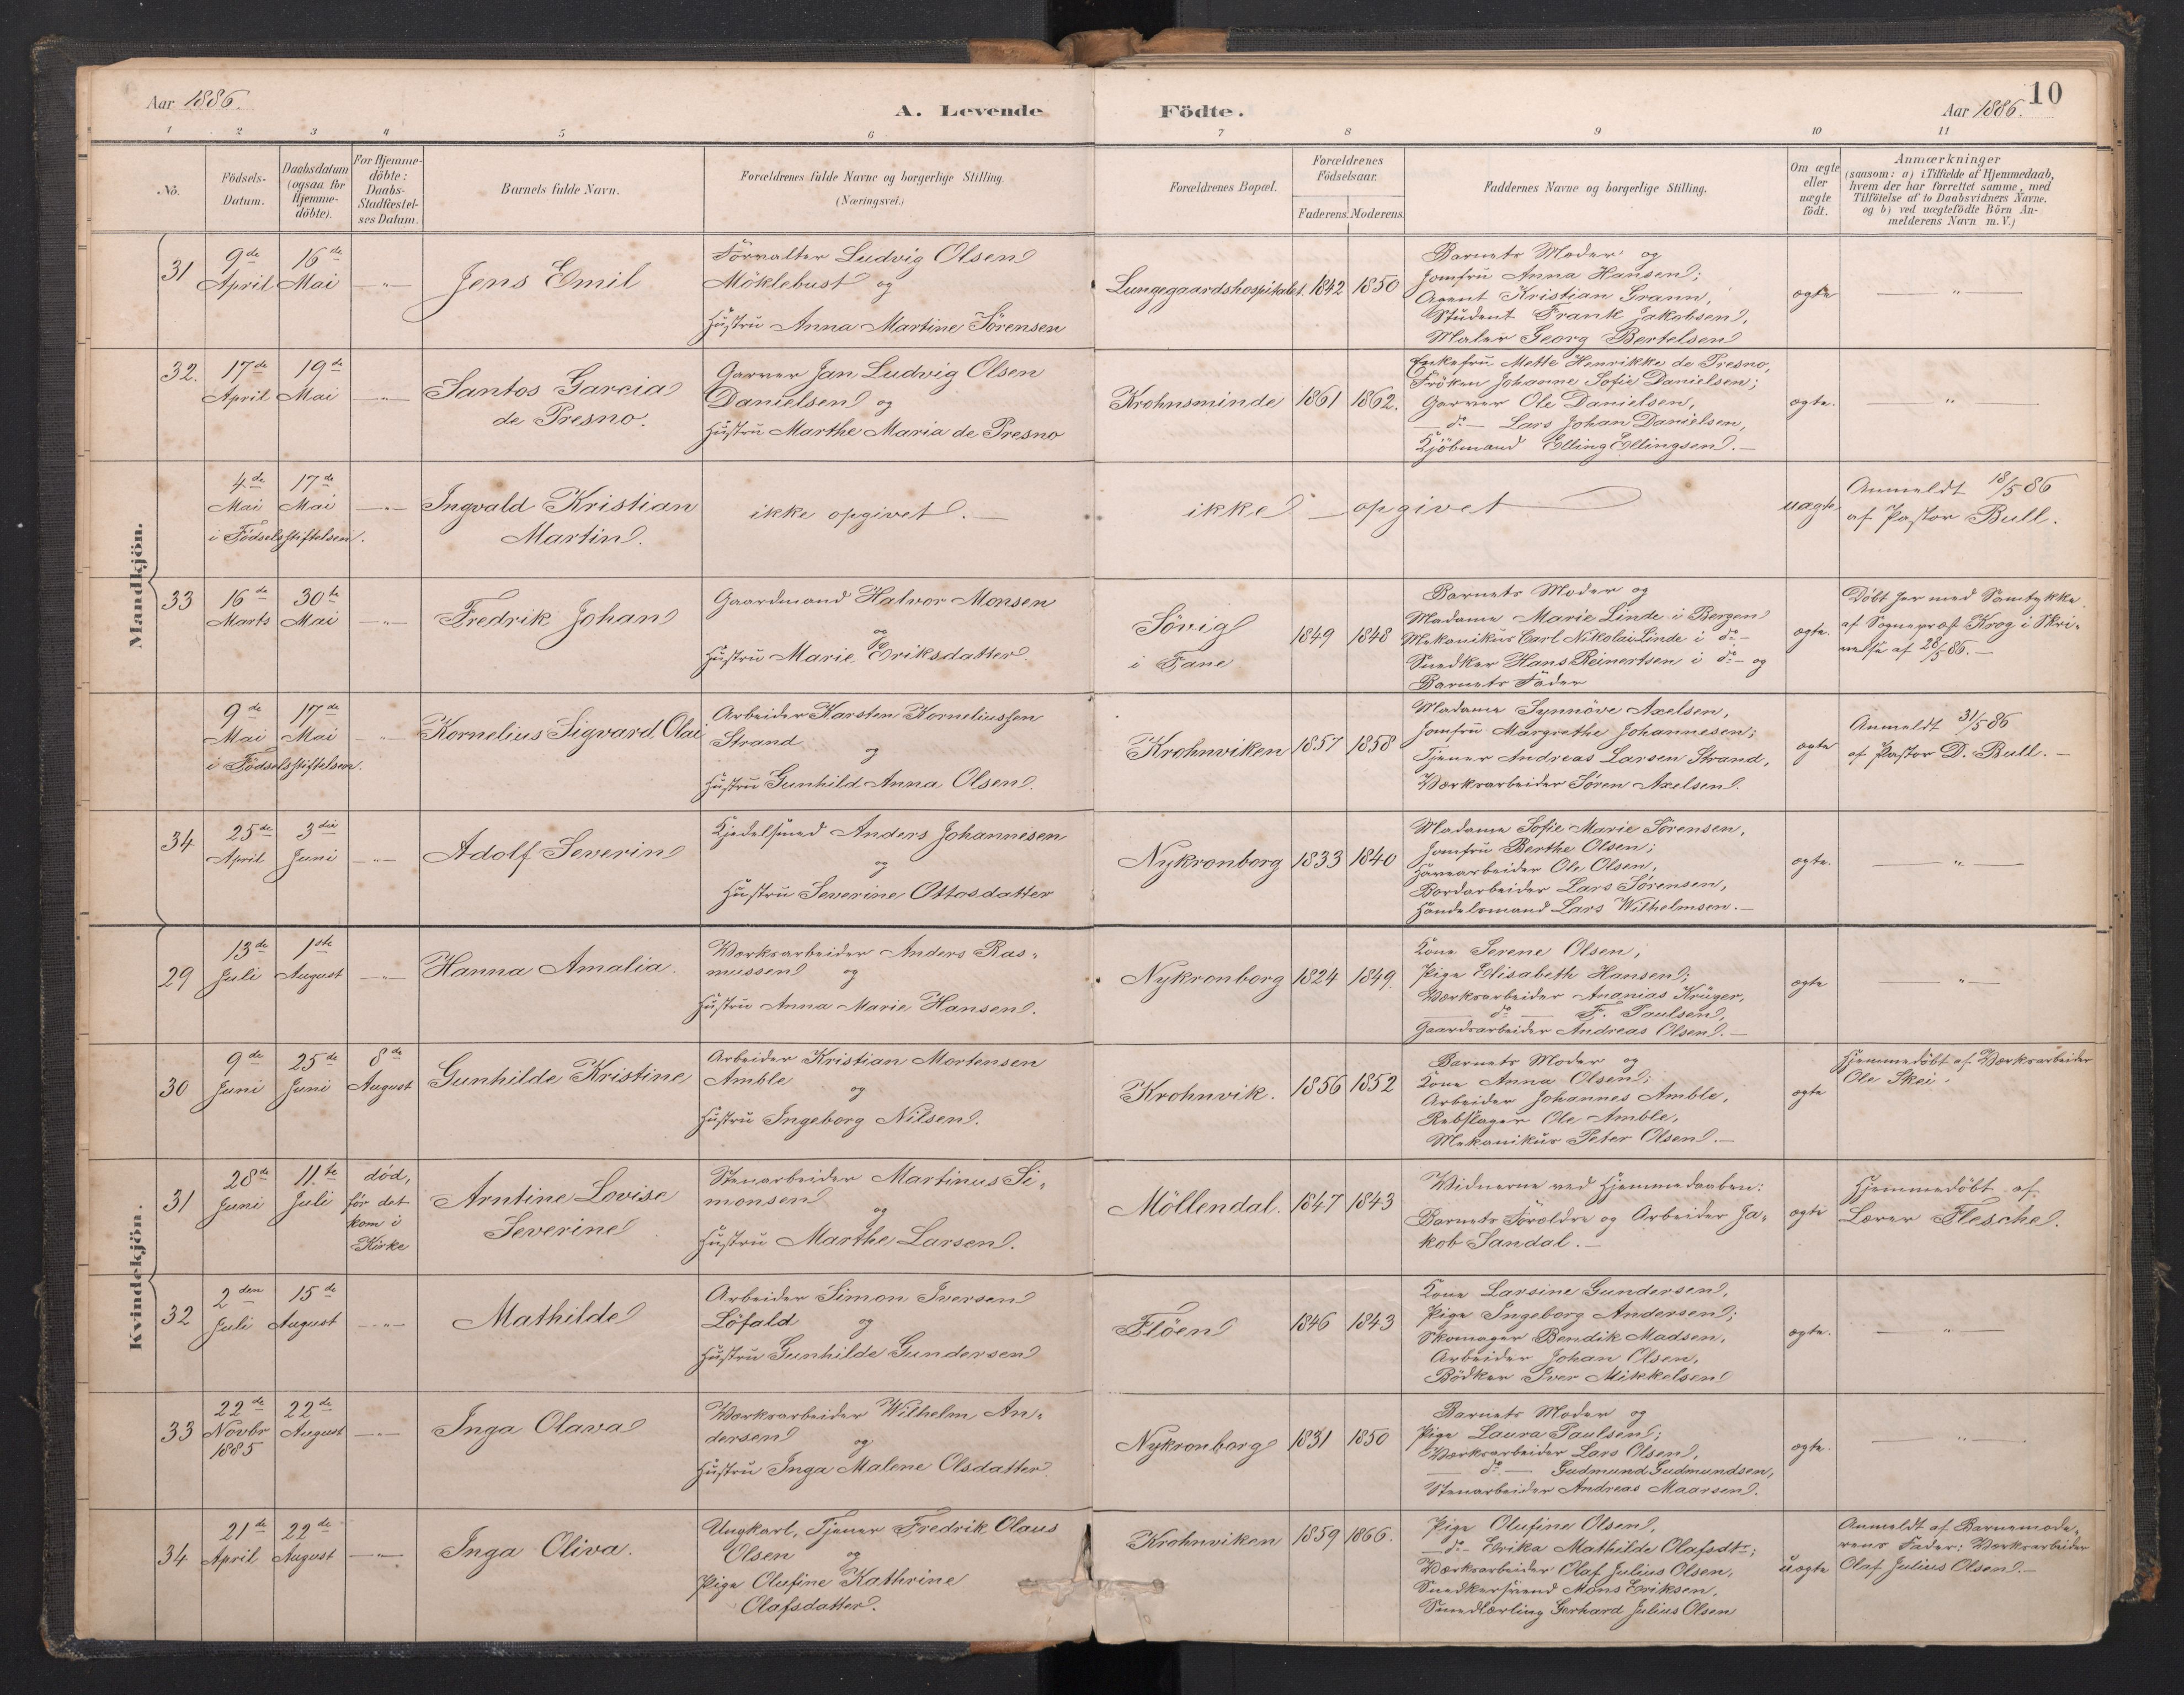 Aar 1886.
A. Levende Födte.
Aar 1886.
10
1 2 3 4 5 6 7 8 9 10 11
No.
Födsels-
Datum.
Daabsdatum
(ogsaa for
Hjemme-
döbte).
For Hjemme-
döbte:
Daabs-
Stadfæstel-
ses Datum.
Barnets fulde Navn.
Forældrenes fulde Navne og borgerlige Stilling.
(Næringsvei.)
Forældrenes Bopæl.
Forældrenes
Födselsaar.
Faderens. Moderens.
Faddernes Navne og borgerlige Stilling.
Om ægte
eller
uægte
födt.
Anmærkninger
(saasom: a) i Tilfælde af Hjemmedaab,
hvem der har forrettet samme, med
Tilföielse af to Daabsvidners Navne.
og b) ved uægtefödte Börn An-
melderens Navn m.V.)
Mandkjön.
31
9de
April
16de
Mai
—"—
Jens Emil
Forvalter Ludvig Olsen
Möklebust og
Hustru Anna Martine Sörensen
Lungegaardshospitalet. 1842 1850
Barnets Moder og
Jomfru Anna Hansen;
Agent Kristian Grann,
Student Frank Jakobsen,
Maler Georg Bertelsen
ægte
—"—
32.
17de
April
19de
Mai
—"—
Santos Garcia
de Presno.
Garver Jan Ludvig Olsen
Danielsen og
Hustru Marthe Maria de Presno
Krohnsminde 1861 1862.
Enkefru Mette Henrikke de Presno,
Fröken Johanne Sofie Danielsen;
Garver Ole Danielsen,
— do — Lars Johan Danielsen,
Kjöbmand Elling Ellingsen. —
ægte.
—"—
4de
Mai
17de
Mai
i Födselsstiftelsen.
—"—
Ingvald Kristian
Martin.
ikke opgivet. —
ikke — opgivet —
uægte
Anmeldt 18/5 86
af Pastor Bull.
33
16de
Marts
30te
Mai
—"—
Fredrik Johan
Gaardmand Halvor Monsen
og
Hustru Marie Eriksdatter.
Sövig
i Fane
1849 1848
Barnets Moder og
Madame Marie Linde i Bergen
Mekanikus Carl Nikolai Linde i do —
Snedker Hans Reinertsen i do — og
Barnets Fader
ægte.
Döbt her med Samtykke
af Sognepræst Krog i Skri-
velse af 28/5 86. —
9de
Mai
17de
Mai
i Födselsstiftelsen.
—"—
Kornelius Sigvard Olai
Arbeider Karsten Korneliussen
Strand og
Hustru Gunhild Anna Olsen.
Krohnviken 1857 1858
Madame Synnöve Axelsen,
Jomfru Margrethe Johannesen;
Tjener Andreas Larsen Strand,
Værksarbeider Sören Axelsen.
ægte
Anmeldt 31/5 86
af Pastor D. Bull. —
34
25de
April
3die
Juni
—"—
Adolf Severin
Kjedelsmed Anders Johannesen
og
Hustru Severine Ottosdatter
Nykronborg 1833 1840
Madame Sofie Marie Sörensen,
Jomfru Berthe Olsen;
Havearbeider Ole Olsen,
Bordarbeider Lars Sörensen,
Handelsmand Lars Wilhelmsen. —
ægte.
—"—
Kvindekjön.
29
13de
Juli
1ste
August
—"—
Hanna Amalia.
Værksarbeider Anders Ras-
mussen og
Hustru Anna Marie Hansen.
Nykronborg 1824 1849.
Kone Serene Olsen,
Pige Elisabeth Hansen;
Værksarbeider Ananias Krüger,
— do — F. Paulsen,
Gaardsarbeider Andreas Olsen. —
ægte
—"—
30
9de
Juni
25de
Juni
8de
August
Gunhilde Kristine
Arbeider Kristian Mortensen
Amble og
Hustru Ingeborg Nilsen.
Krohnvik. 1856 1852
Barnets Moder og
Kone Anna Olsen;
Arbeider Johannes Amble,
Rebslager Ole Amble,
Mekanikus Peter Olsen. —
ægte
Hjemmedöbt af Værksarbeider
Ole Skei.
31
28de
Juni
11.te
Juli
död,
för det
kom i
Kirke
Arntine Lovise
Severine
Stenarbeider Martinus Si-
monsen og
Hustru Marthe Larsen.
Möllendal. 1847 1843
Vidnerne ved Hjemmedaaben:
Barnets Forældre og Arbeider Ja-
kob Sandal. —
ægte
Hjemmedöbt af
Lærer Flesche.
32
2den
Juli
15de
August
—"—
Mathilde
Arbeider Simon Iversen
Löfald og
Hustru Gunhilde Gundersen
Flöen 1846 1843
Kone Larsine Gundersen,
Pige Ingeborg Andersen;
Skomager Bendik Madsen,
Arbeider Johan Olsen,
Bödker Iver Mikkelsen
ægte.
—"—
33
22de
Novbr
1885
22de
August
—"—
Inga Olava
Værksarbeider Wilhelm An-
dersen og
Hustru Inga Malene Olsdatter
Nykronborg 1831 1850
Barnets Moder og
Pige Laura Paulsen;
Værksarbeider Lars Olsen,
— do — Gudmund Gudmundsen,
Stenarbeider Andreas Maarsen.
ægte.
—"—
34
21de
April
22de
August
—"—
Inga Oliva.
Ungkarl, Tjener Fredrik Olaus
Olsen og
Pige Olufine Kathrine
Olafsdatter.
Krohnviken 1859 1866.
Pige Olufine Olsen,
— do — Erika Mathilde Olafsdtr;
Værksarbeider Olaf Julius Olsen,
Snedkersvend Mons Eriksen,
Smedlærling Gerhard Julius Olsen
uægte
Anmeldt af Barnemode-
rens Fader: Værksarbeider
Olaf Julius Olsen. —